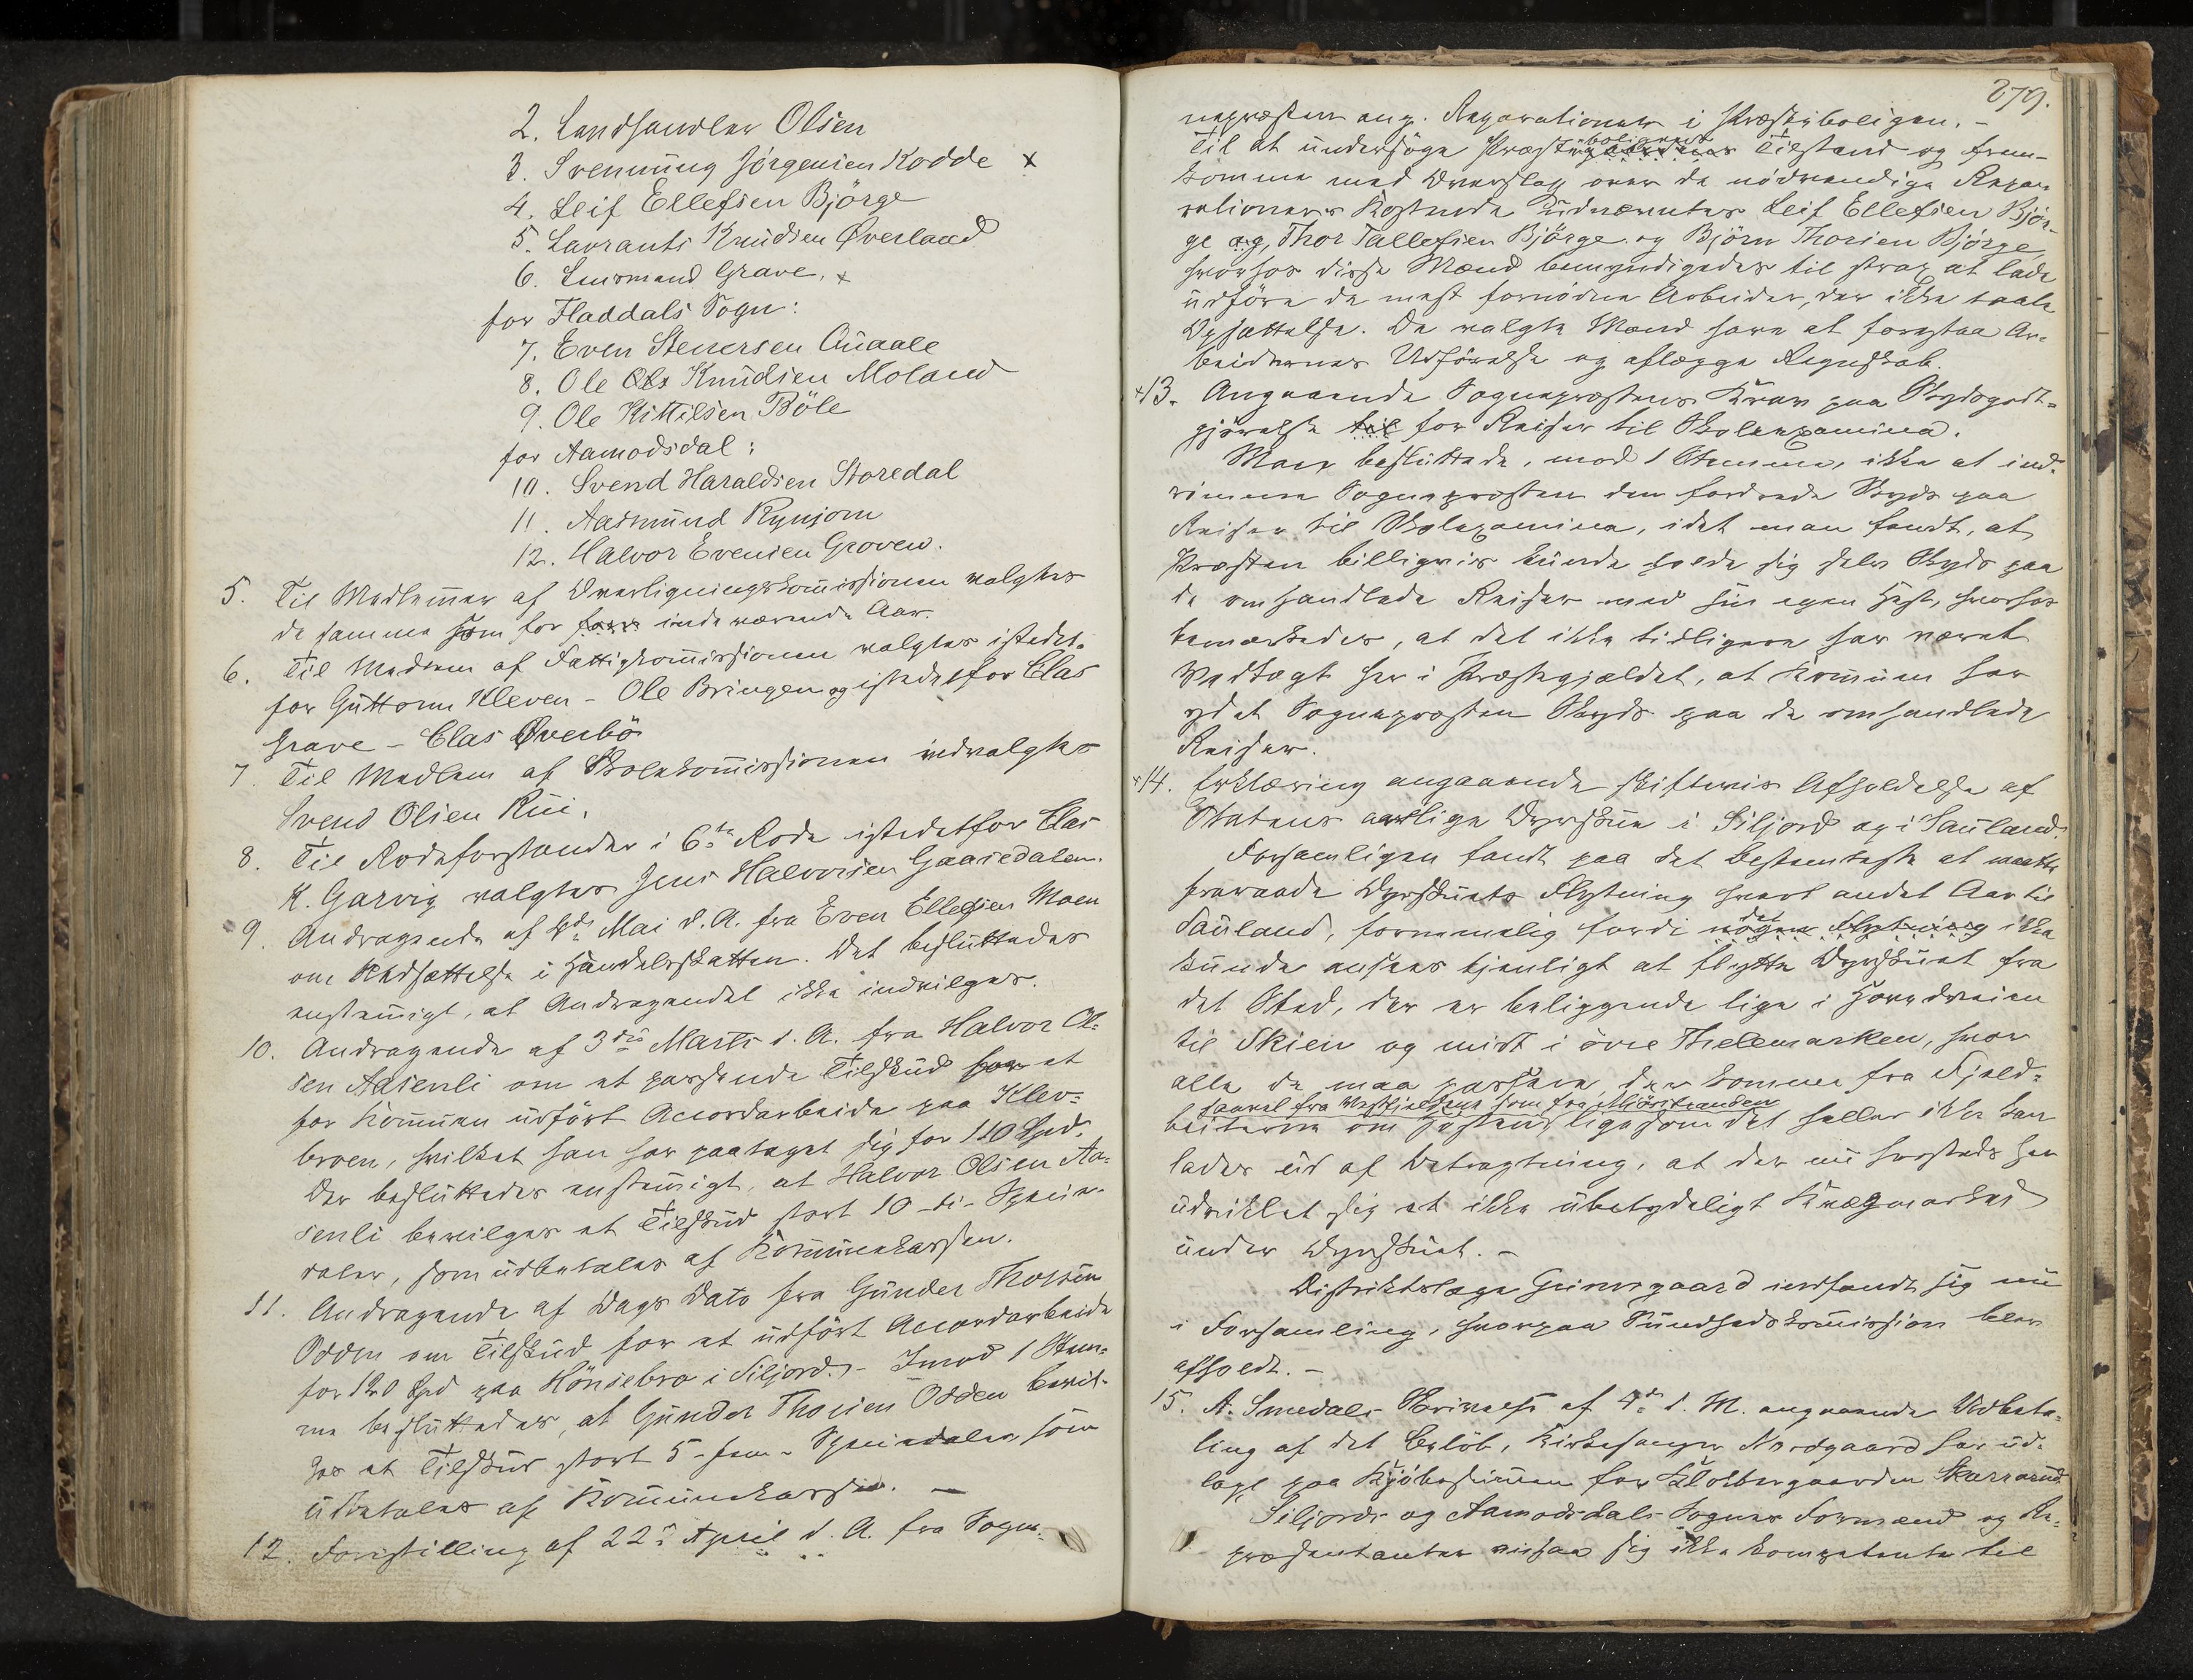 2. Landhandler Olsen
3. Svennüng Jörgensen Kodde x
4. Leif Ellefsen Björge
5. Lavrants Knüdsen Överland
6. Lensmand Grave, x
for Fladdals Sogn:
7. Even Stenersen Aüaale
8. Ole Knüdsen Moland
9. Ole Kittilsen Böle
for Aamodsdal:
10. Svend Haraldsen Storedal
11. Aasmünd Rynjom
12. Halvor Evensen Groven.
5. Til Medlemer af Overligningskomissionen valgtes
de samme som for indeværende Aar.
6. Til Medlem af Fattigkomissionen valgtes istedet-
for Güttorm Kleven - Ole Bringen og istedetfor Clas
Grave - Clas Överbö
7. Til Medlem af Skolekomissionen indvalgtes
Svend Olsen Rüi.
8. Til Rodeforstander i 6te Rode istedetfor Clas
K. Garvig valgtes Jens Halvorsen Gaasedalen.
9. Andragende af 4de Mai d. A. fra Even Ellefsen Moen
om Nedsættelse i Handelsskatten. Det beslüttedes
enstemigt, at Andragendet ikke indvilges.
10. Andragende af 3die Marts d. A. fra Halvor Ol-
sen Aasenli om et passende Tilsküd for et
for Komünen üdfört Accordarbeide paa Klev-
broen, hvilket han har paataget sig for 110 Spd.
Der beslüttedes enstemigt, at Halvor Olsen Aa-
senli bevilges et Tilsküd stort 10 - ti - Specie-
daler, som üdbetales af Komünekassen.
11. Andragende af Dags Dato fra Günder Thorsen
Odden om Tilsküd for et üdfört Accordarbeide
for 120 Spd paa Hönsebro i Siljord. - Imod 1 Stem-
me beslüttedes, at Günder Thorsen Odden bevil-
ges et Tilsküd stort 5 - fem - Speciedaler, som
üdbetales af Komünekassen. -
12. Forestilling af 22de April d. A. fra Sogne-
279.
nepræsten ang. Reparationer i Præsteboligen. -
Til at ündersöge Præstebolignens Tilstand og frem-
komme med Overslag over de nödvendige Repa-
rationers Kostende üdnævntes Leif Ellefsen Björ-
ge og, Thor Tallefsen Björge og Björn Thorsen Björge,
hvorhos disse Mænd bemyndigedes til strax at lade
üdföre de mest fornödne Arbeider, der ikke taale
Opsættelse. De valgte Mænd have at forestaa Ar-
beidernes Udförelse og aflægge Regnskab.
x13. Angaaende Sognepræstens Krav paa Skydsgodt-
gjörelse til for Reiser til Skolexamina.
Man beslüttede, mod 1 Stemme, ikke at ind-
römme Sognepræsten den fordrede Skyds paa
Reiser til Skolexamina, idet man fandt, at
Præsten billigvis künde holde sig selv Skyds paa
de omhandlede Reiser med sin egen Hest, hvorhos
bemærkedes, at det ikke tidligere har været
Vedtægt her i Præstegjældet, at Komünen har
ydet Sognepræsten Skyds paa de omhandlede
Reiser.
x14. Erklæring angaaende skiftevis Afholdelse af
Statens aarlige Dyrskue i Siljord og i Saüland.
Forsamlingen fandt paa det bestemteste at maatte
fraraade Dyrsküets Flytning hvert andet Aar til
Saüland, fornemmelig fordi det nogen Flytning ikke
künde ansees tjenligt at flytte Dyrsküet fra
det Sted, der er beliggende lige i Hovedveien
til Skien og midt i övre Thelemarken, hvor
alle de maa passere, der komme fra Fjeld-
saavel fra Vestfjeldene som fra Mjösstranden
beiterne om Hösten, ligesom det heller ikke kan
lades üd af Betragtning, at der nü hersteds har
üdviklet sig et ikke übetydeligt Kvægmarked
ünder Dyrsküet. -
Distriktslæge Grimsgaard indfandt sig nü
i Forsamling, hvorpaa Sündhedskomission blev
afholdt. -
15. A. Smedals Skrivelse af 4de d. M. angaaende Udbeta-
ling af det Belöb, Kirkesanger Nordgaard har üd-
lagt paa Kjöbesümen for Klokkergaarden Skarraüd.
Siljords og Aamodsdals Sognes Formænd og Re-
præsentanter ansaa sig ikke kompetente til